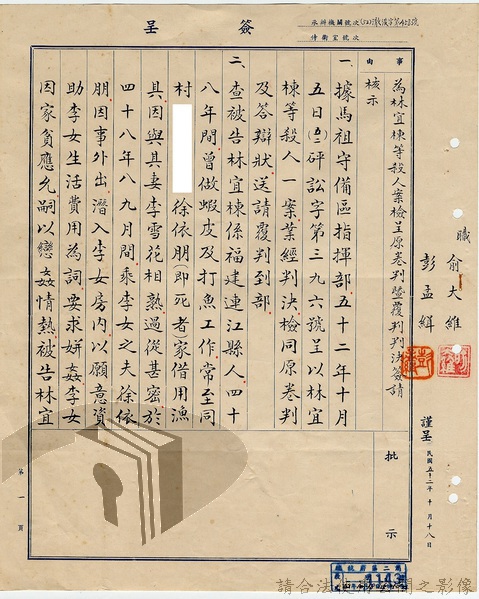 簽呈
承辦機關號次
侍衛室號次
事由
為林宜棟等殺人案檢呈原卷判暨覆判判決簽請
核示
職 俞大維
彭孟緝
謹呈
民國五十二年十月十八日
一、據馬祖守備區指揮部五十二年十月
五日(五二)砰訟字第三九六號呈以林宜
棟等殺人一案業經判決檢同原卷判
及答辯狀送請覆判到部
二、查被告林宜棟係福建連江縣人四十
八年間曾做蝦皮及打魚工作常至同
村 徐依朋(即死者家借用漁
具因與其妻李雪花相熟過從甚密於
四十八年八九月間乘李女之夫徐依
朋因事外出潛入李女房內以願意資
助李女生活費用為詞要求姘姦李女
因家貧應允嗣以戀姦情熱被告林宜
批示
第一頁
1143
請合法使用公開之影像